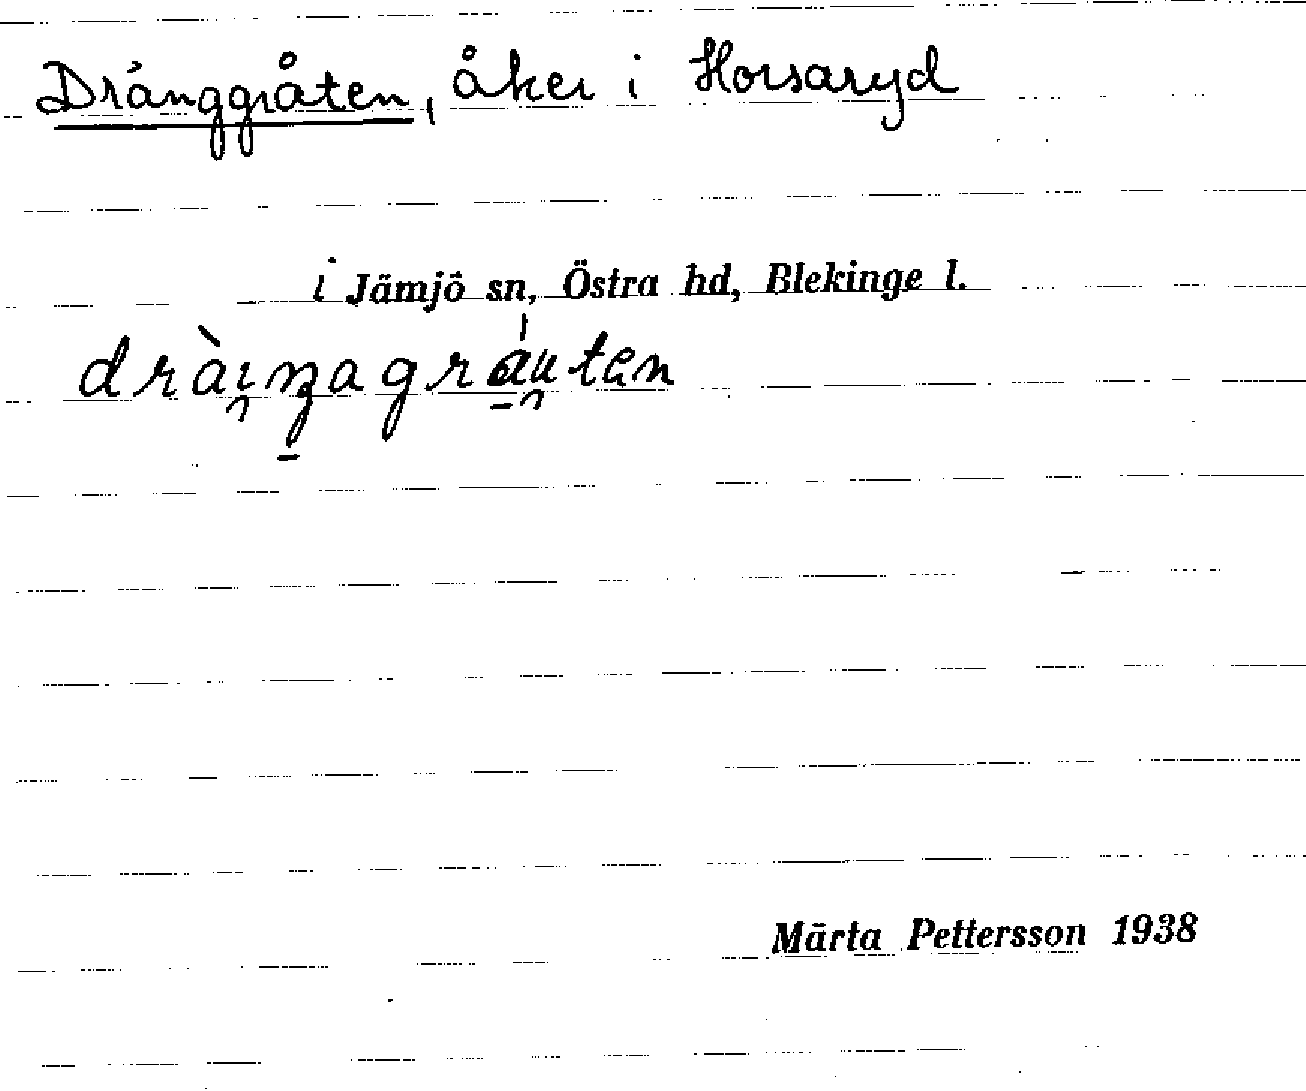 Dränggråten, åker i Horsaryd
i Jämjö sn, Östra hd, Blekinge l.
Märta Pettersson 1938